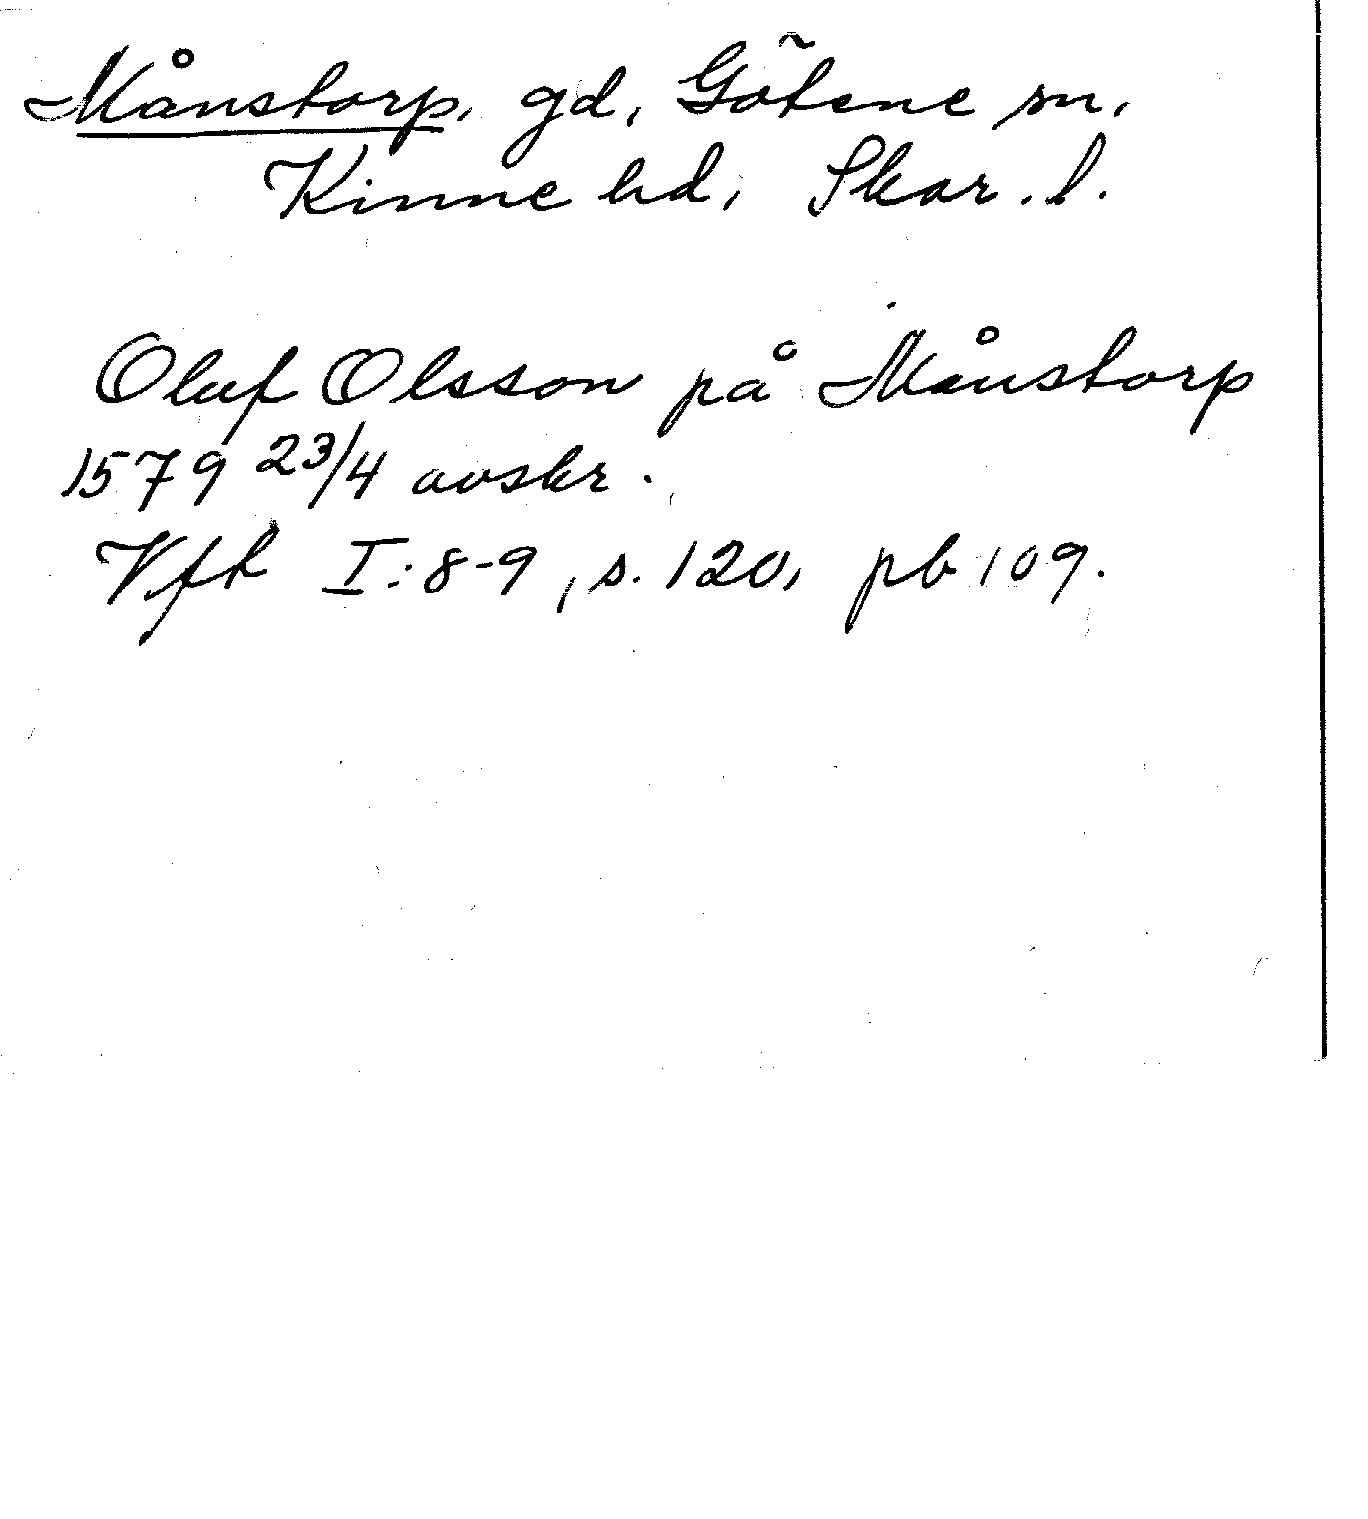 Månstorp, gd, Götene sn,
Kinne hd, Skar. l.
Oluf Olsson på Månstorp
1579 23/4 avskr.
Vft I:8-9, s. 120, pb 109.